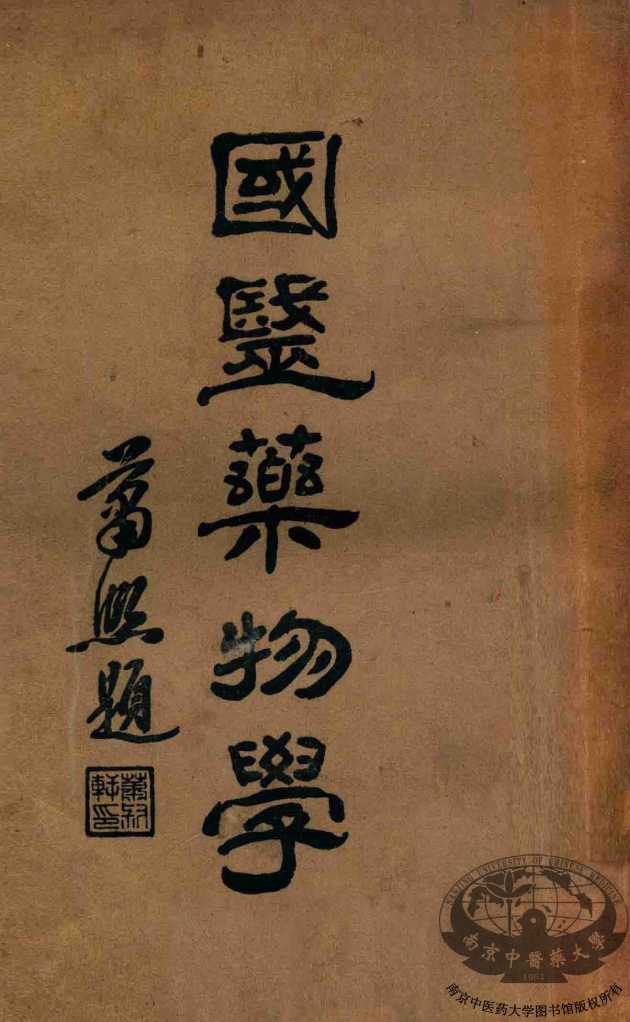 國毉藥物學
蕭熙題
蕭叔
軒印
NANJING UNIVERSITY OF CHINESE MEDICINE
南京中醫藥大學
1954
南京中医药大学图书馆版权所有